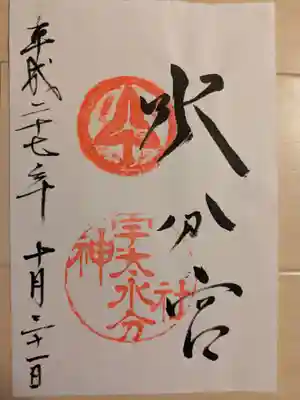 水分宮
宇太水分
神社
平成二十七年 十月二十一日